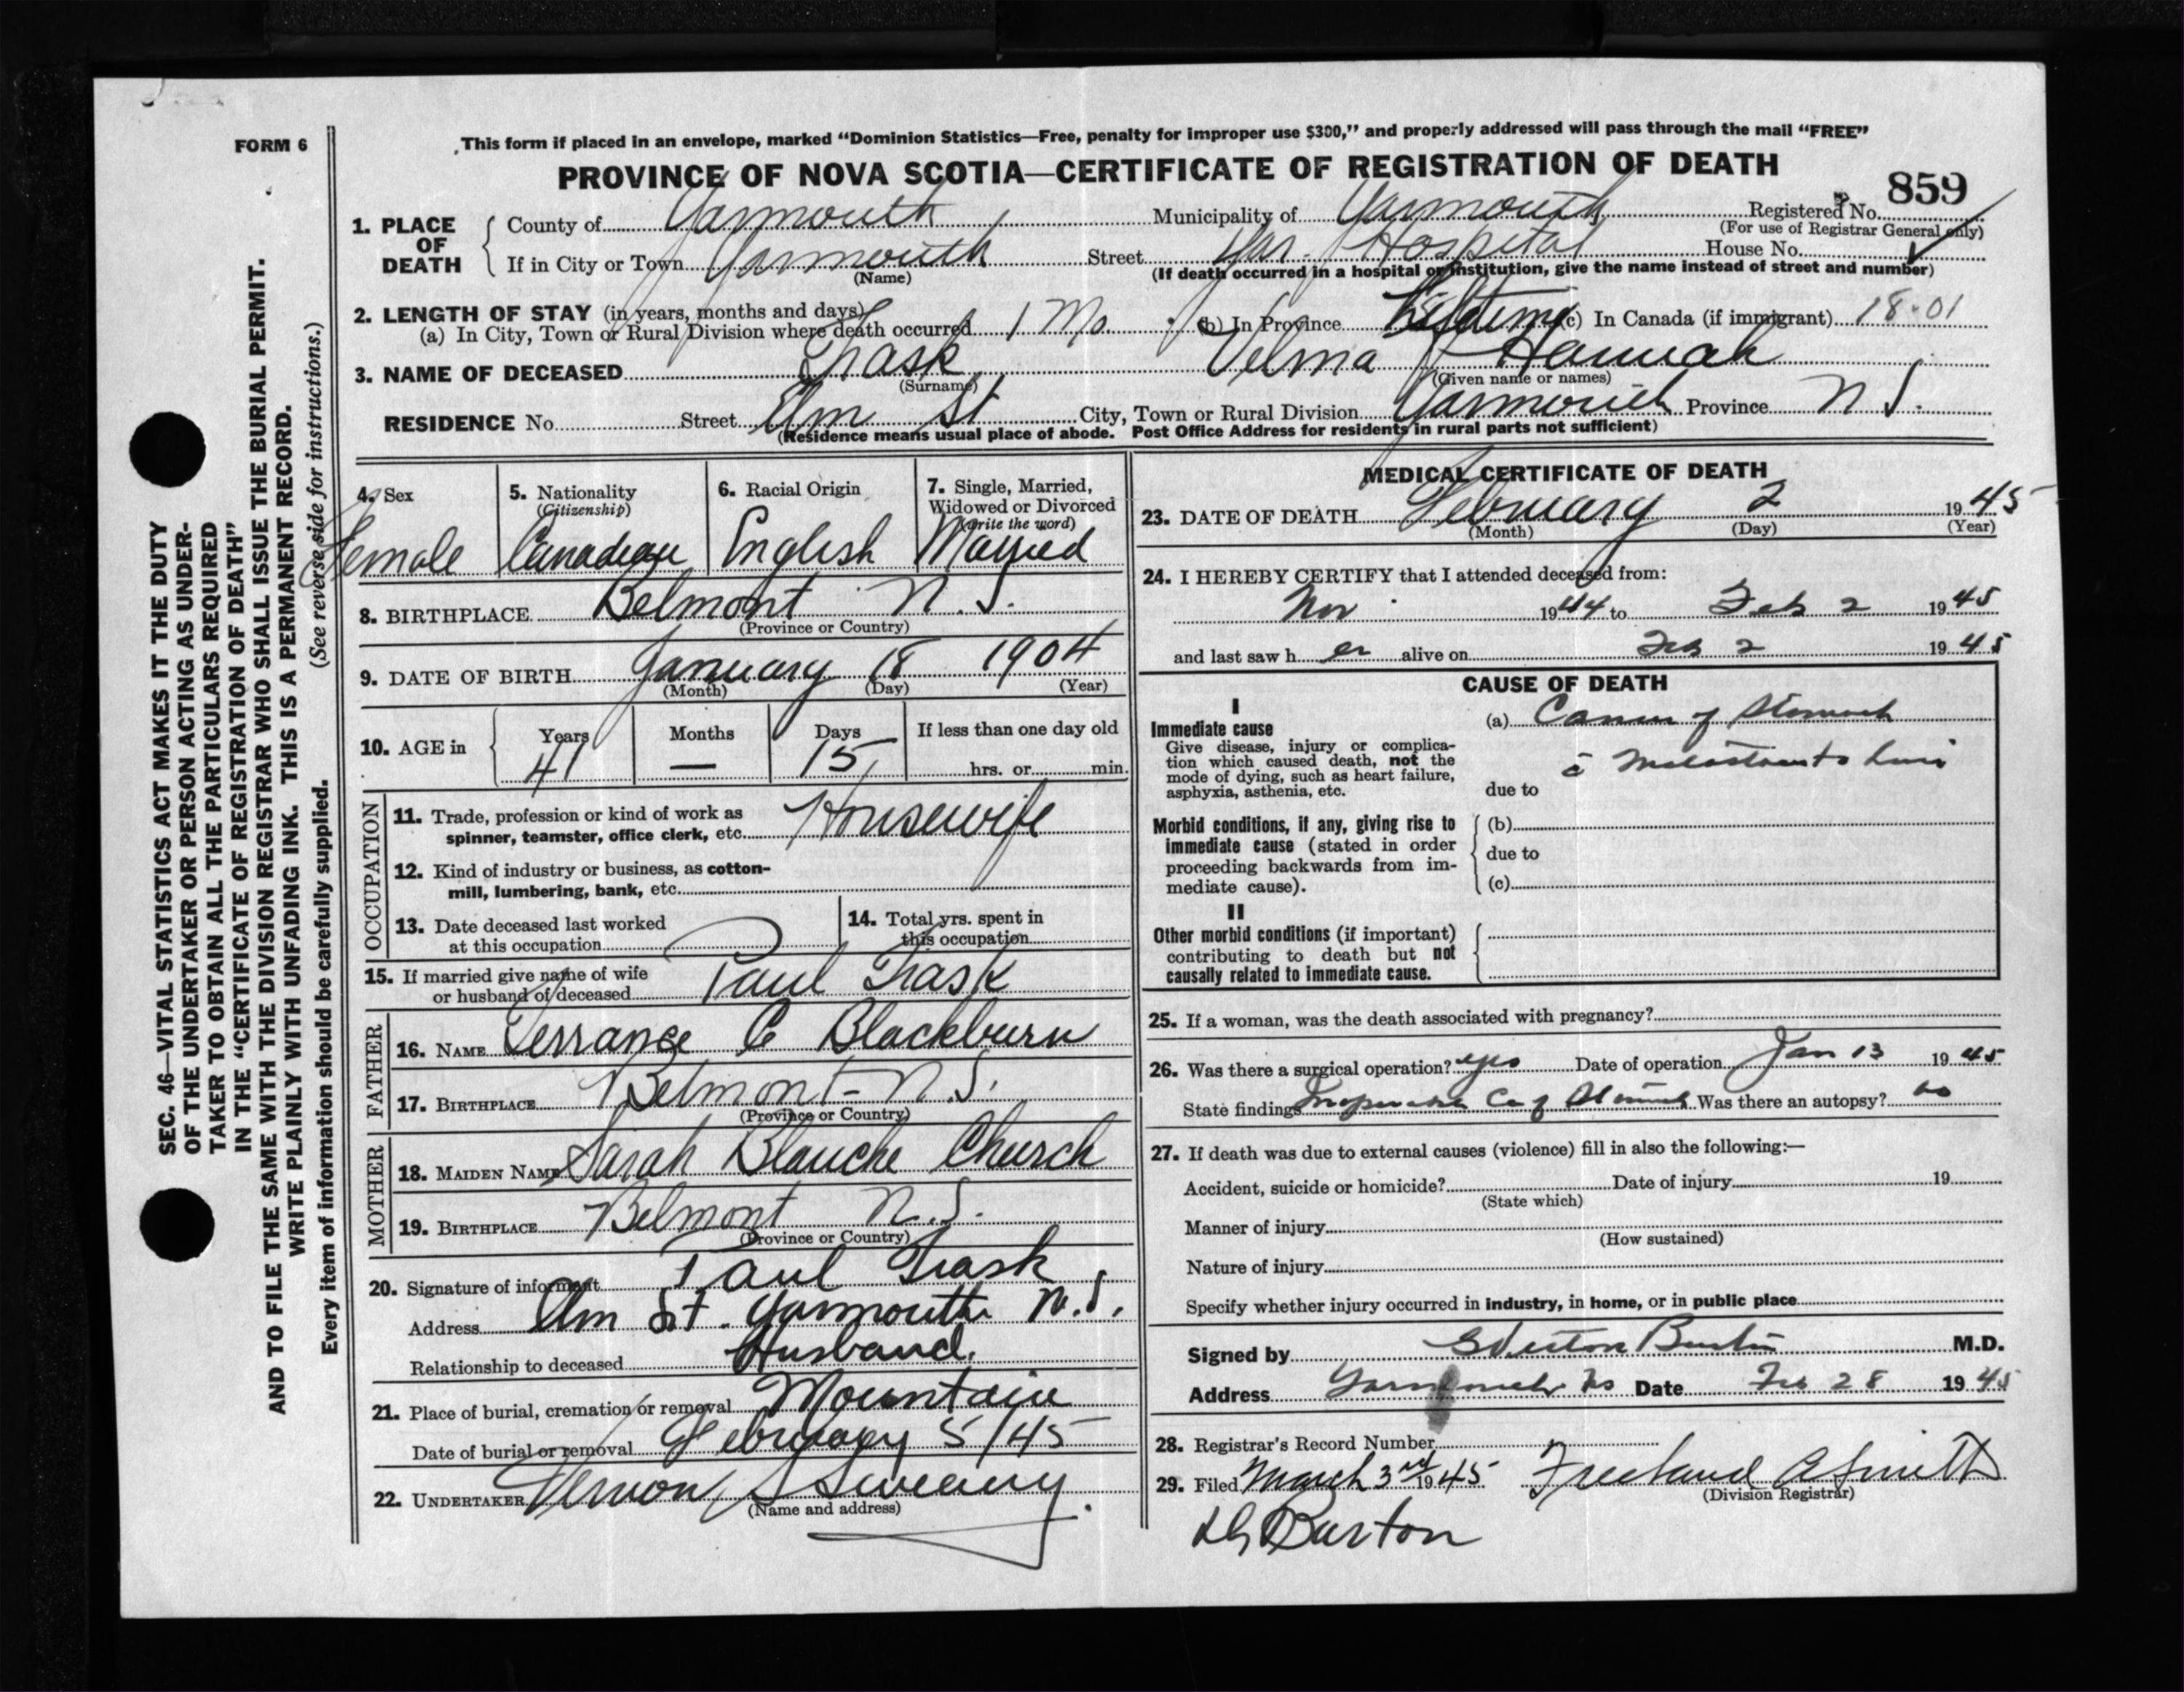 FORM 6
This form if placed in an envelope, marked “Dominion Statistics—Free, penalty for improper use $300,” and properly addressed will pass through the mail “FREE”
PROVINCE OF NOVA SCOTIA—CERTIFICATE OF REGISTRATION OF DEATH
859
1. PLACE OF DEATH
County of Yarmouth Municipality of Yarmouth Registered No.
(For use of Registrar General only)
If in City or Town Yarmouth Street Yar. Hospital House No.
(Name) (If death occurred in a hospital or institution, give the name instead of street and number)
2. LENGTH OF STAY (in years, months and days)
(a) In City, Town or Rural Division where death occurred 1 Mo. (b) In Province Lifetime (c) In Canada (if immigrant) 18-01
3. NAME OF DECEASED Trask Velma Hannah
(Surname) (Given name or names)
RESIDENCE No. Street Elm St City, Town or Rural Division Yarmouth Province N S.
(Residence means usual place of abode. Post Office Address for residents in rural parts not sufficient)
4. Sex
Female
5. Nationality
(Citizenship)
Canadian
6. Racial Origin
English
7. Single, Married,
Widowed or Divorced
(write the word)
Married
8. BIRTHPLACE Belmont N. S.
(Province or Country)
9. DATE OF BIRTH January 18 1904
(Month) (Day) (Year)
10. AGE in
Years Months Days If less than one day old
41 — 15 hrs. or min.
OCCUPATION
11. Trade, profession or kind of work as
spinner, teamster, office clerk, etc. Housewife
12. Kind of industry or business, as cotton-
mill, lumbering, bank, etc.
13. Date deceased last worked
at this occupation
14. Total yrs. spent in
this occupation
15. If married give name of wife
or husband of deceased Paul Trask
FATHER
16. NAME Terrance C Blackburn
17. BIRTHPLACE Belmont - N. S.
(Province or Country)
MOTHER
18. MAIDEN NAME Sarah Blanche Church
19. BIRTHPLACE Belmont N. S.
(Province or Country)
20. Signature of informant Paul Trask
Address Elm St. Yarmouth N. S.
Relationship to deceased Husband.
21. Place of burial, cremation or removal Mountain
Date of burial or removal February 5/45
22. UNDERTAKER Vernon S Sweeny.
(Name and address)
MEDICAL CERTIFICATE OF DEATH
23. DATE OF DEATH February 2 1945
(Month) (Day) (Year)
24. I HEREBY CERTIFY that I attended deceased from:
Nov 1944 to Feb 2 1945
and last saw her alive on Feb 2 1945
CAUSE OF DEATH
I
Immediate cause
Give disease, injury or complica-
tion which caused death, not the
mode of dying, such as heart failure,
asphyxia, asthenia, etc.
(a) Cancer of Stomach
due to
Morbid conditions, if any, giving rise to
immediate cause (stated in order
proceeding backwards from im-
mediate cause).
(b)
due to
(c)
II
Other morbid conditions (if important)
contributing to death but not
causally related to immediate cause.
25. If a woman, was the death associated with pregnancy?
26. Was there a surgical operation? yes Date of operation Jan 13 1945
State findings Ca of Stomach Was there an autopsy? no
27. If death was due to external causes (violence) fill in also the following:—
Accident, suicide or homicide? Date of injury 19
(State which)
Manner of injury
(How sustained)
Nature of injury
Specify whether injury occurred in industry, in home, or in public place
Signed by Burton M.D.
Address Yarmouth NS Date Feb 28 1945
28. Registrar's Record Number
29. Filed March 3rd 1945 Freeland Smith
(Division Registrar)
Burton
SEC. 46—VITAL STATISTICS ACT MAKES IT THE DUTY
OF THE UNDERTAKER OR PERSON ACTING AS UNDER-
TAKER TO OBTAIN ALL THE PARTICULARS REQUIRED
IN THE “CERTIFICATE OF REGISTRATION OF DEATH”
AND TO FILE THE SAME WITH THE DIVISION REGISTRAR WHO SHALL ISSUE THE BURIAL PERMIT.
WRITE PLAINLY WITH UNFADING INK. THIS IS A PERMANENT RECORD.
(See reverse side for instructions.)
Every item of information should be carefully supplied.